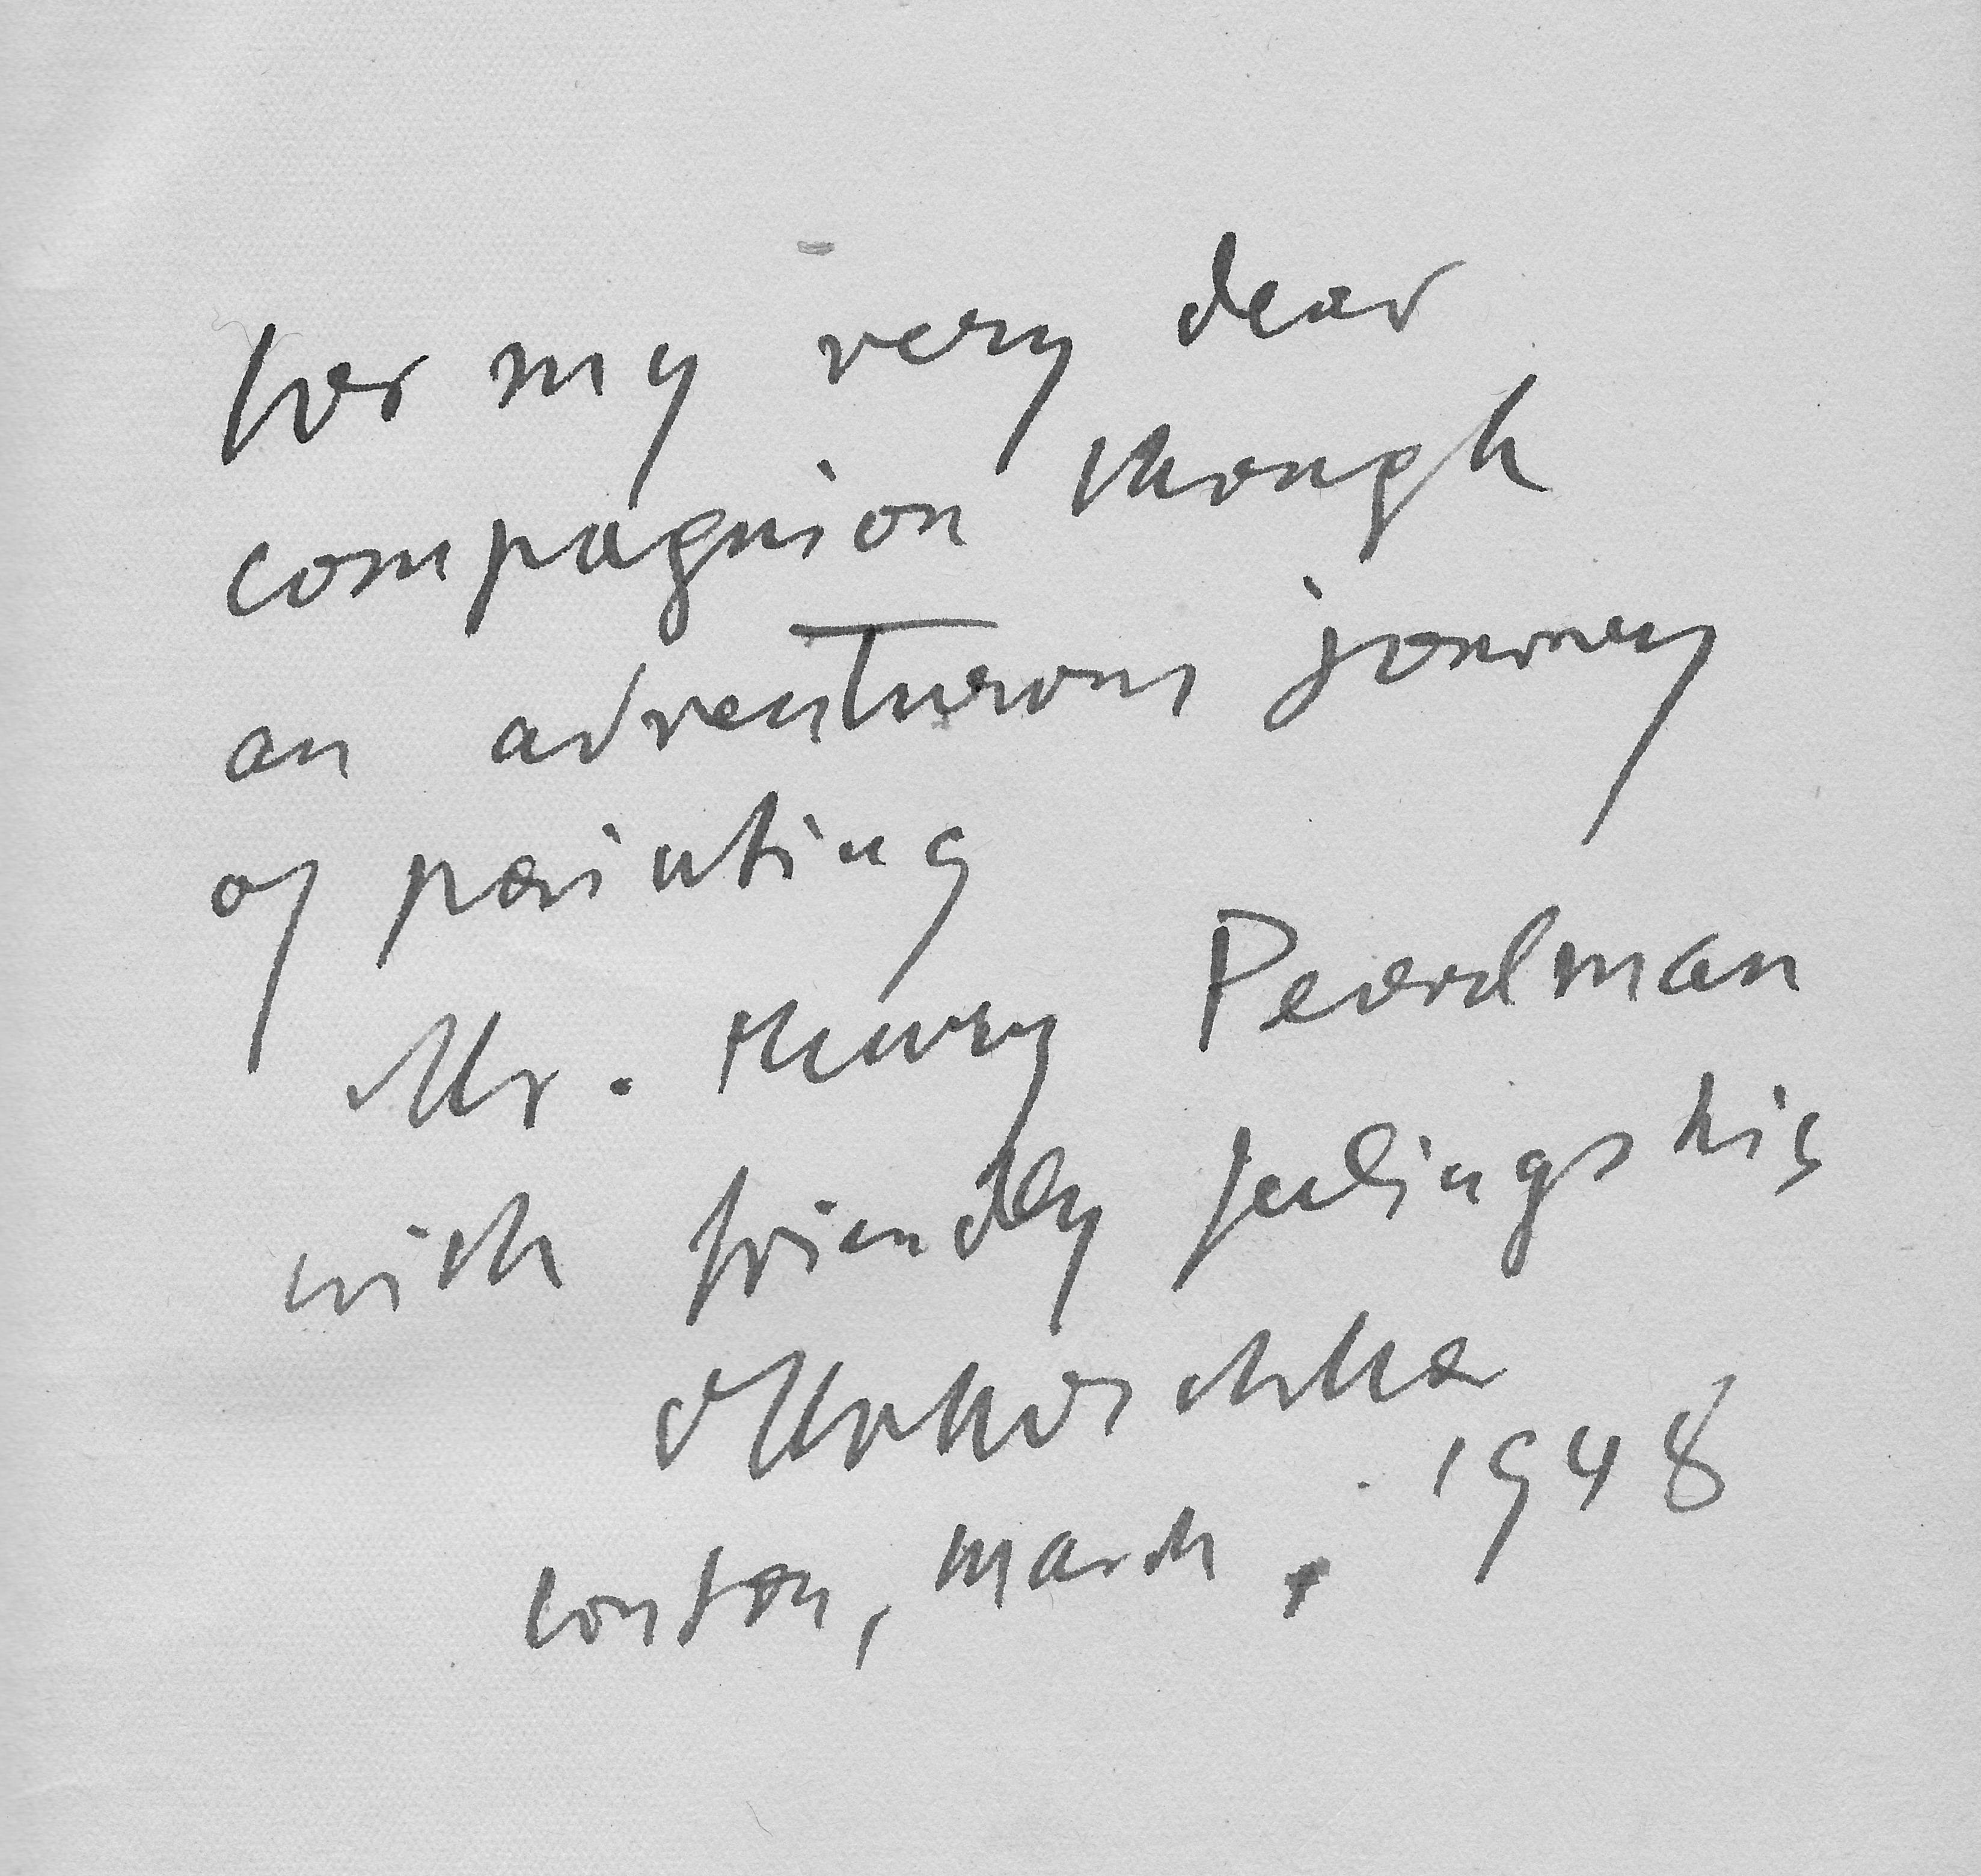 for my very dear
compagnion through
an adventurous journey
of painting
Mr. Henry Pearlman
with friendly feelings his
OKokoschka
London, March, 1948